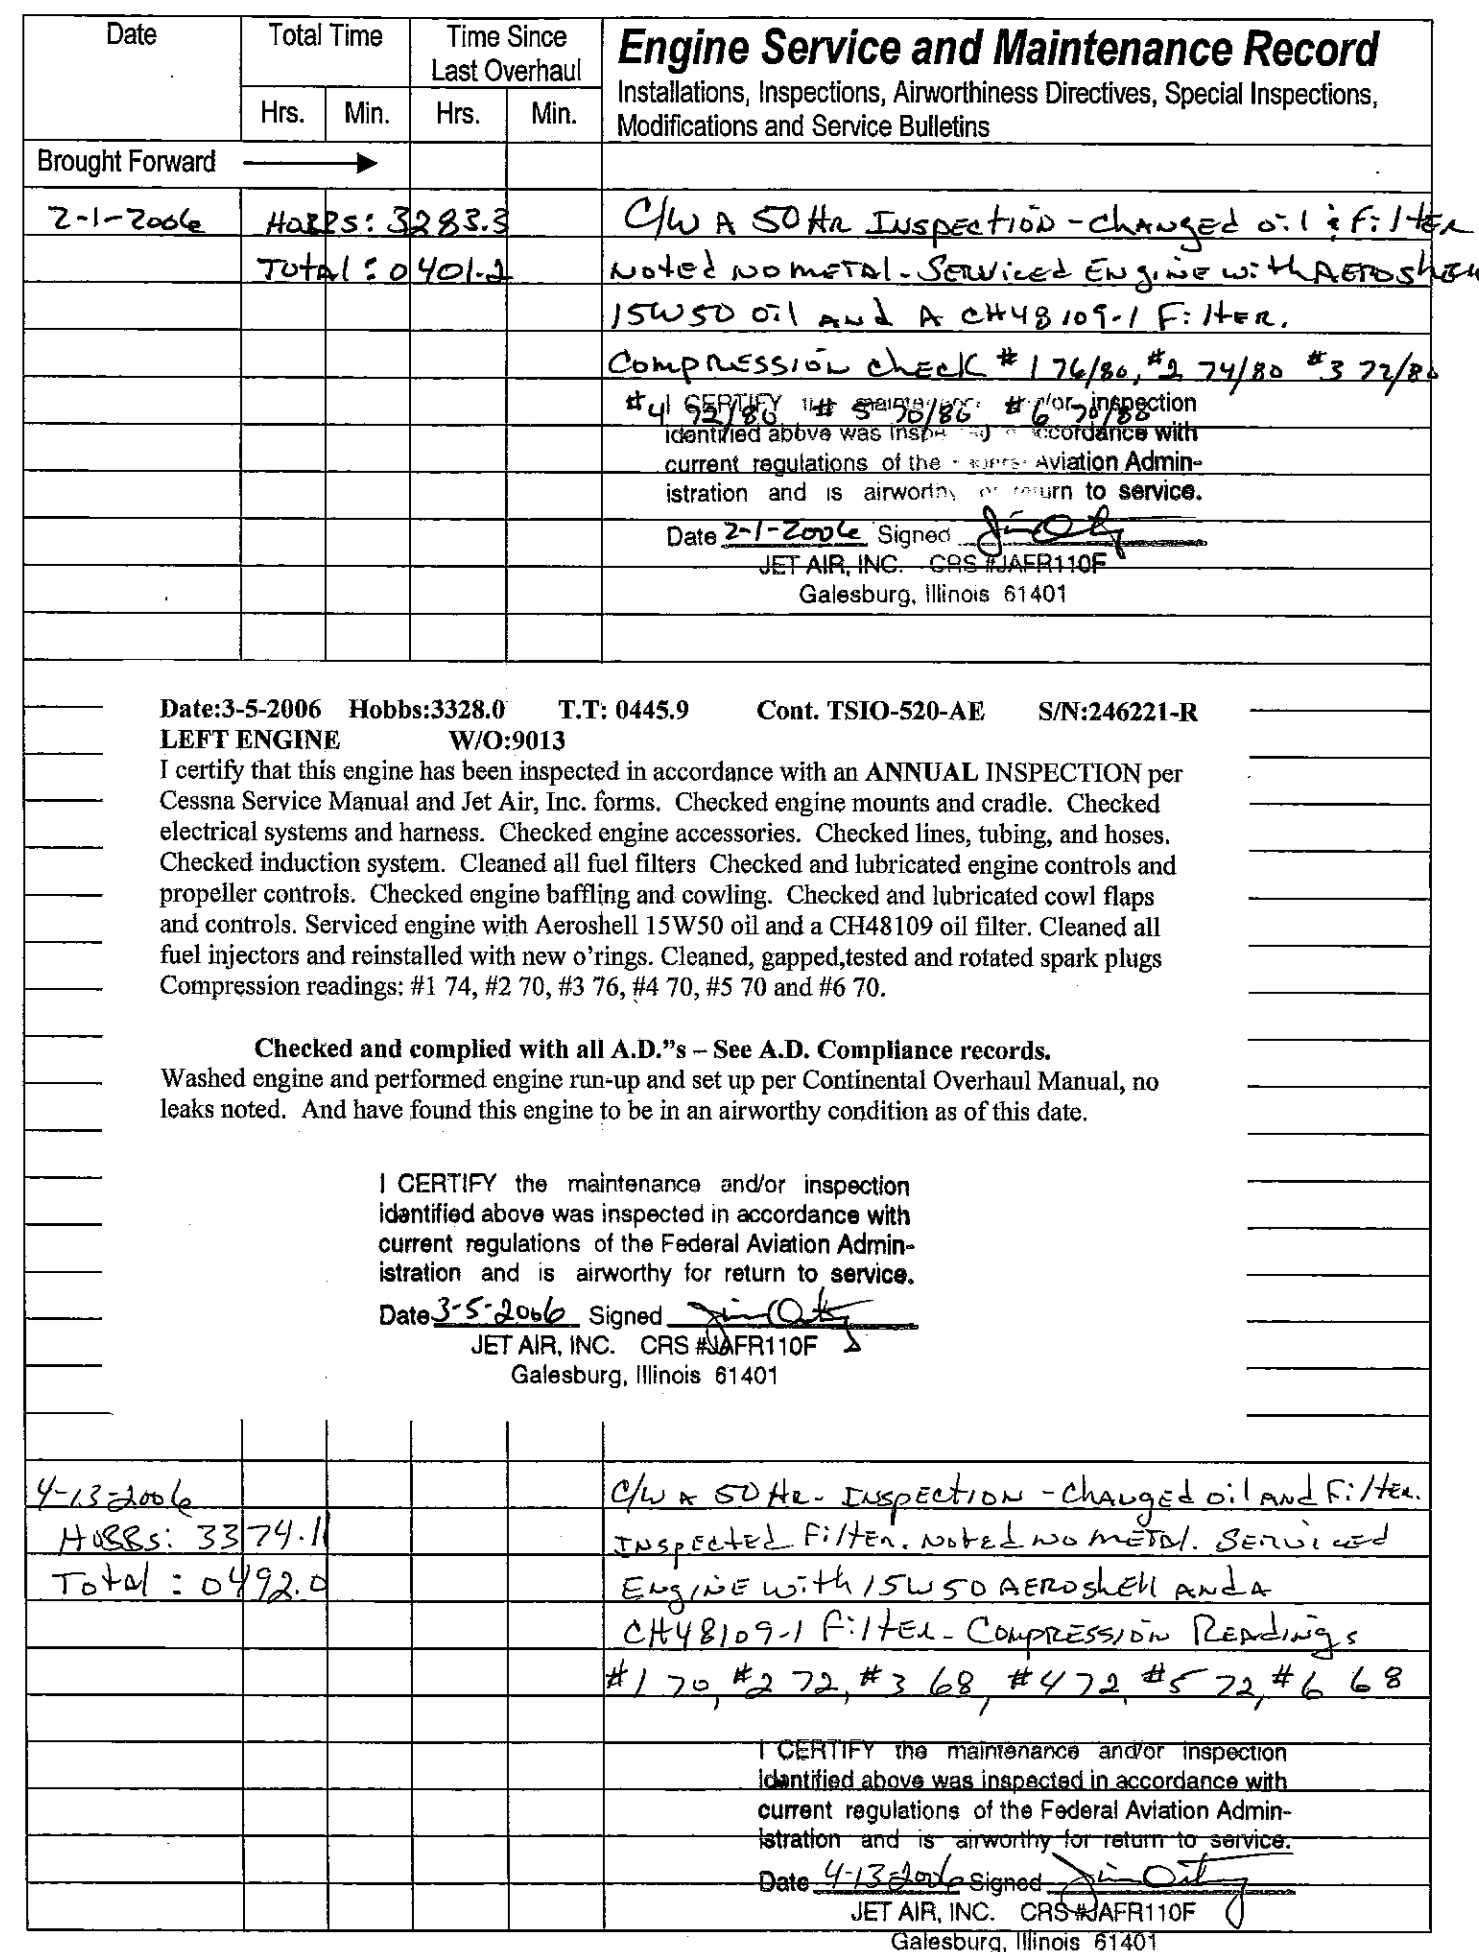 Date Total Time Time Since Last Overhaul Engine Service and Maintenance Record
Hrs. Min. Hrs. Min. Installations, Inspections, Airworthiness Directives, Special Inspections,
Modifications and Service Bulletins
Brought Forward
2-1-2006 HOBBS: 3283.3 C/W A 50 HR INSPECTION - CHANGED OIL & FILTER
TOTAL: 0401.2 NOTED NO METAL. SERVICED ENGINE WITH AEROSHELL
15W50 OIL AND A CH48109-1 FILTER.
COMPRESSION CHECK #1 76/80, #2 74/80 #3 72/80
#4 72/80 #5 70/80 #6 70/80
I CERTIFY the maintenance and/or inspection
identified above was inspected in accordance with
current regulations of the Federal Aviation Admin-
istration and is airworthy for return to service.
Date 2-1-2006 Signed
JET AIR, INC. CRS #JAFR110F
Galesburg, Illinois 61401
Date:3-5-2006 Hobbs:3328.0 T.T: 0445.9 Cont. TSIO-520-AE S/N:246221-R
LEFT ENGINE W/O:9013
I certify that this engine has been inspected in accordance with an ANNUAL INSPECTION per
Cessna Service Manual and Jet Air, Inc. forms. Checked engine mounts and cradle. Checked
electrical systems and harness. Checked engine accessories. Checked lines, tubing, and hoses.
Checked induction system. Cleaned all fuel filters Checked and lubricated engine controls and
propeller controls. Checked engine baffling and cowling. Checked and lubricated cowl flaps
and controls. Serviced engine with Aeroshell 15W50 oil and a CH48109 oil filter. Cleaned all
fuel injectors and reinstalled with new o'rings. Cleaned, gapped,tested and rotated spark plugs
Compression readings: #1 74, #2 70, #3 76, #4 70, #5 70 and #6 70.
Checked and complied with all A.D."s – See A.D. Compliance records.
Washed engine and performed engine run-up and set up per Continental Overhaul Manual, no
leaks noted. And have found this engine to be in an airworthy condition as of this date.
I CERTIFY the maintenance and/or inspection
identified above was inspected in accordance with
current regulations of the Federal Aviation Admin-
istration and is airworthy for return to service.
Date 3-5-2006 Signed
JET AIR, INC. CRS #JAFR110F
Galesburg, Illinois 61401
4-13-2006 C/W A 50 HR. INSPECTION - CHANGED OIL AND FILTER.
HOBBS: 3374.1 INSPECTED FILTER. NOTED NO METAL. SERVICED
TOTAL: 0492.0 ENGINE WITH 15W50 AEROSHELL AND A
CH48109-1 FILTER - COMPRESSION READINGS
#1 70, #2 72, #3 68, #4 72, #5 72, #6 68
I CERTIFY the maintenance and/or inspection
identified above was inspected in accordance with
current regulations of the Federal Aviation Admin-
istration and is airworthy for return to service.
Date 4-13-2006 Signed
JET AIR, INC. CRS #JAFR110F
Galesburg, Illinois 61401